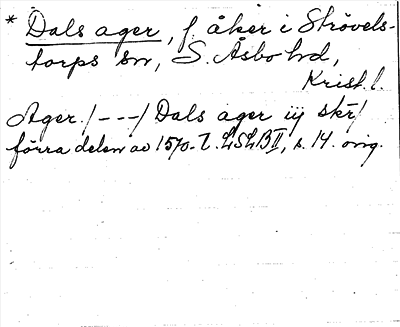 * Dals ager, f. åker i Strövels-
torps sn, S. Åsbo hd,
Krist. l.
Ager /---/ Dals ager iij skr/
förra delen av 1570-t. LSLB II, s. 14. orig.